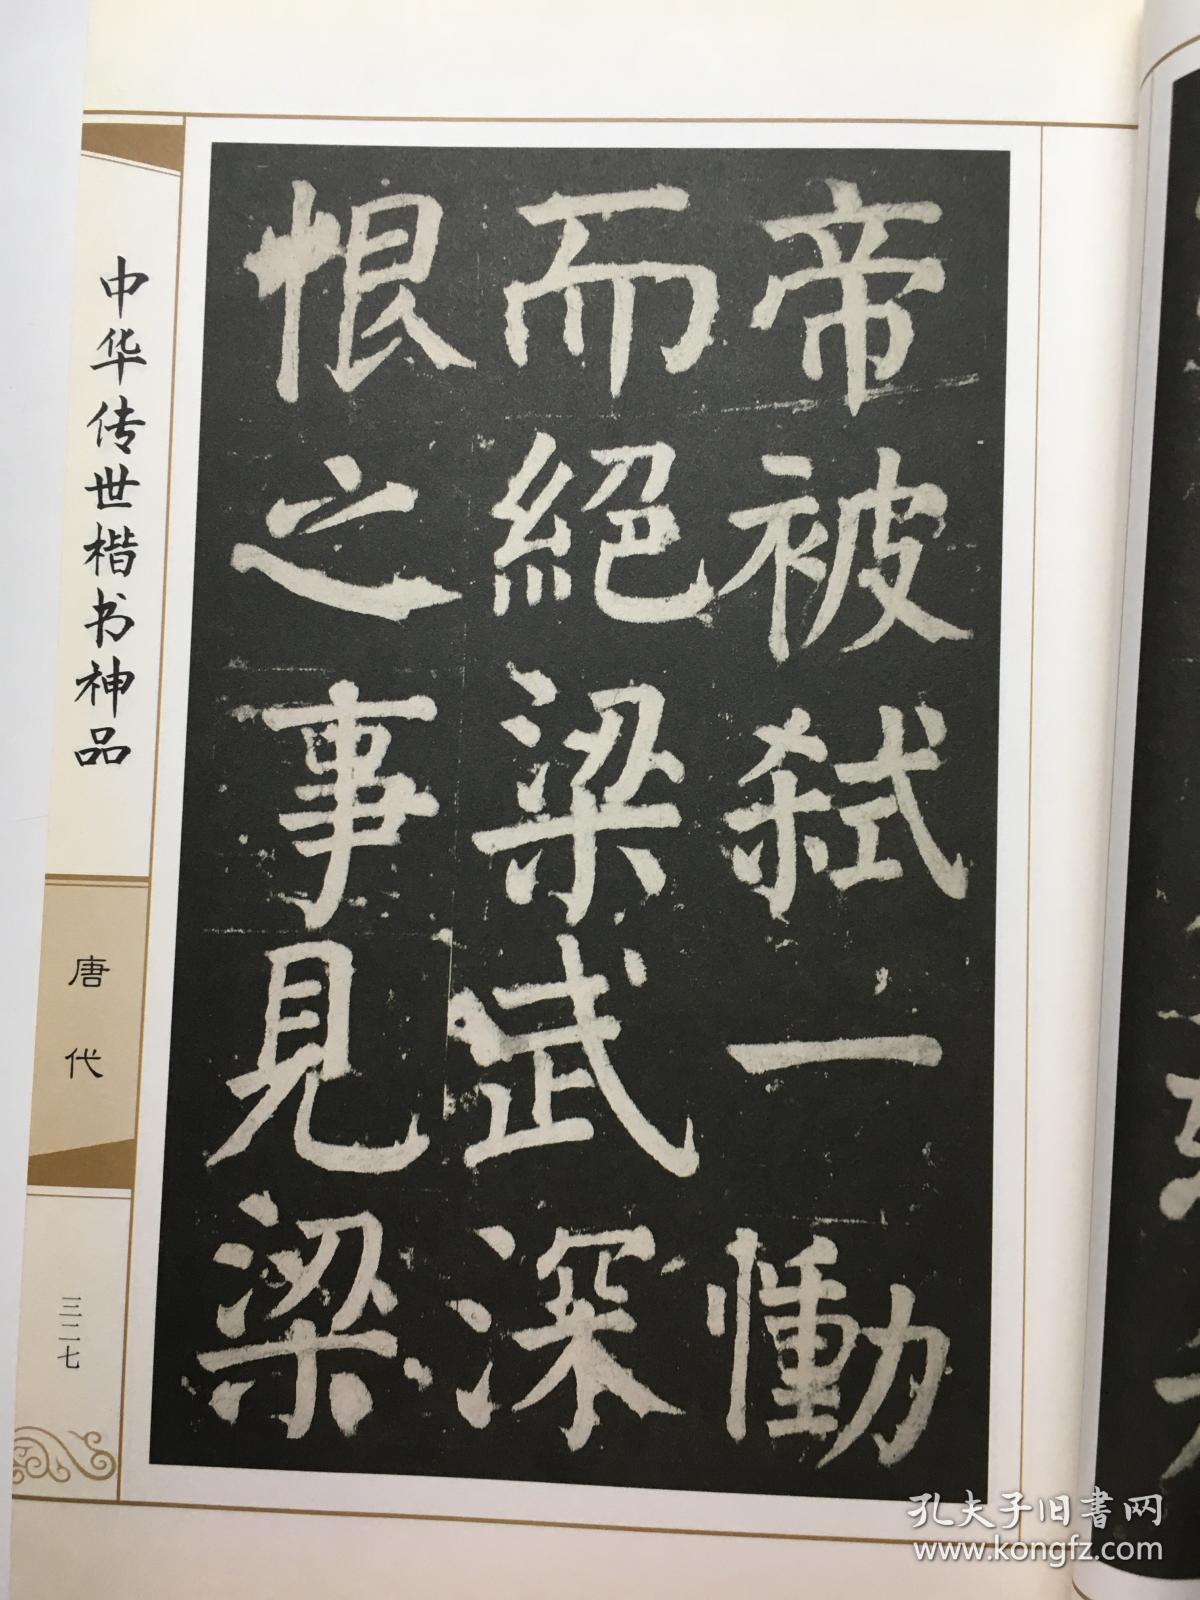 帝被弑一慟
而絕梁武深
恨之事見梁
中华传世楷书神品
唐代
三二七
孔夫子旧書网
www.kongfz.com